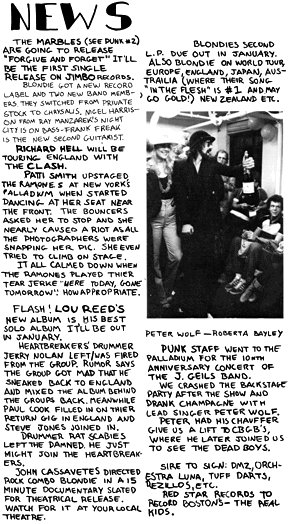 NEWS
THE MARBLES (SEE PUNK #2)
ARE GOING TO RELEASE
"FORGIVE AND FORGET" IT'LL
BE THE FIRST SINGLE
RELEASE ON JIMBO RECORDS.
BLONDIE GOT A NEW RECORD
LABEL AND TWO NEW BAND MEMB-
ERS THEY SWITCHED FROM PRIVATE
STOCK TO CHRYSALIS, NIGEL HARRIS-
ON FROM RAY MANZAREK'S NIGHT
CITY IS ON BASS-FRANK FREAK
IS THE NEW SECOND GUITARIST.
RICHARD HELL WILL BE
TOURING ENGLAND WITH
THE CLASH.
PATTI SMITH UPSTAGED
THE RAMONES AT NEW YORK'S
PALLADIUM WHEN STARTED
DANCING AT HER SEAT NEAR
THE FRONT. THE BOUNCERS
ASKED HER TO STOP AND SHE
NEARLY CAUSED A RIOT AS ALL
THE PHOTOGRAPHERS WERE
SNAPPING HER PIC. SHE EVEN
TRIED TO CLIMB ON STAGE.
IT ALL CALMED DOWN WHEN
THE RAMONES PLAYED THIER
TEAR JERKE "HERE TODAY, GONE
TOMORROW". HOW APPROPRIATE.
FLASH! LOU REED'S
NEW ALBUM IS HIS BEST
SOLO ALBUM IT'LL BE OUT
IN JANUARY.
HEARTBREAKERS' DRUMMER
JERRY NOLAN LEFT/WAS FIRED
FROM THE GROUP. RUMOR SAYS
THE GROUP GOT MAD THAT HE
SNEAKED BACK TO ENGLAND
AND MIXED THE ALBUM BEHIND
THE GROUPS BACK. MEANWHILE
PAUL COOK FILLED IN ON THIER
RETURN GIG IN ENGLAND AND
STEVE JONES JOINED IN.
DRUMMER RAT SCABIES
LEFT THE DAMNED. HE JUST
MIGHT JOIN THE HEARTBREAK-
ERS.
JOHN CASSAVETES DIRECTED
ROCK COMBO BLONDIE IN A 15
MINUTE DOCUMENTARY SLATED
FOR THEATRICAL RELEASE.
WATCH FOR IT AT YOUR LOCAL
THEATRE.
BLONDIES SECOND
L.P. DUE OUT IN JANUARY.
ALSO BLONDIE ON WORLD TOUR,
EUROPE, ENGLAND, JAPAN, AUS-
TRAILIA (WHERE THEIR SONG
"IN THE FLESH" IS #1 AND MAY
GO GOLD!) NEW ZEALAND ETC.
PETER WOLF — ROBERTA BAYLEY
PUNK STAFF WENT TO THE
PALLADIUM FOR THE 10NTH
ANNIVERSARY CONCERT OF
THE J. GEILS BAND.
WE CRASHED THE BACKSTAGE
PARTY AFTER THE SHOW AND
DRANK CHAMPAGNE WITH
LEAD SINGER PETER WOLF.
PETER HAD HIS CHAUFFER
GIVE US A LIFT TO CBGB'S,
WHERE HE LATER JOINED US
TO SEE THE DEAD BOYS.
SIRE TO SIGN: DMZ, ORCH-
ESTRA LUNA, TUFF DARTS,
REZILLOS, ETC.
RED STAR RECORDS TO
RECORD BOSTON'S — THE REAL
KIDS.